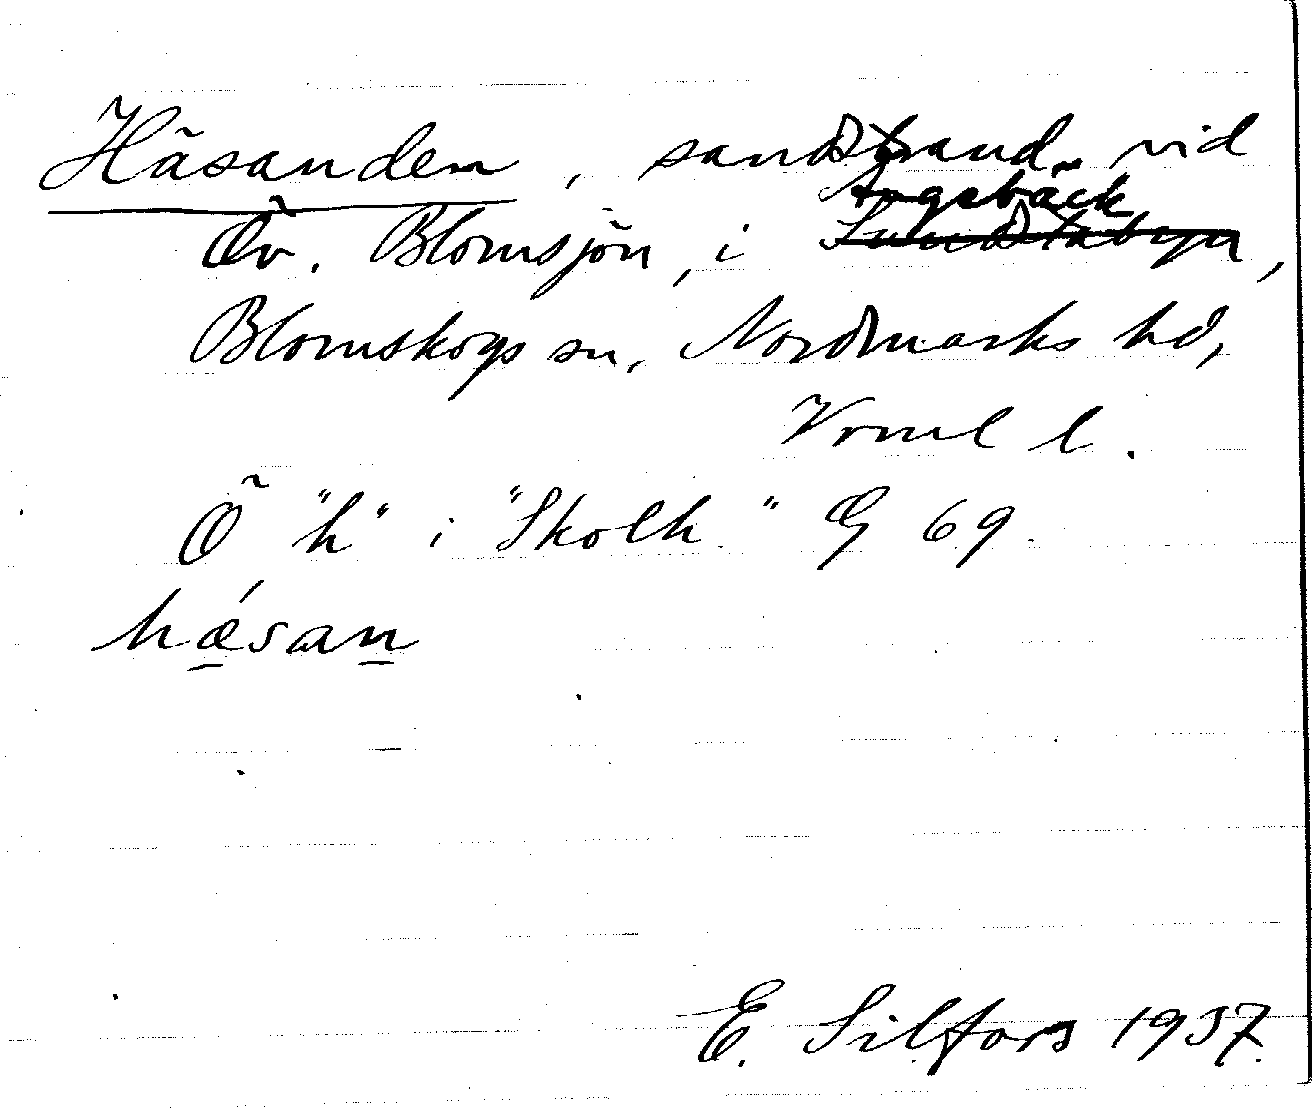 Häsanden, sandstrand vid
Öv. Blomsjön, i Ängebäck
Blomskogs sn, Nordmarks hd,
Vrml l.
Ö "h" i "Skolh." G 69.
hǽsan
E. Silfors 1937.